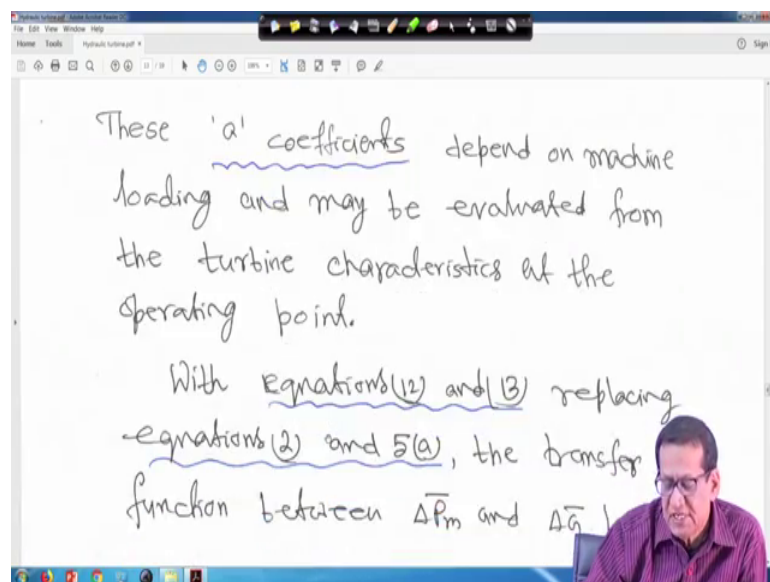 Hydraulic turbine.pdf - Adobe Acrobat Reader DC
File Edit View Window Help
Home Tools Hydraulic turbine.pdf ×
Sign
These 'a' coefficients depend on machine
loading and may be evaluated from
the turbine characteristics at the
operating point.
With equations (12) and (13) replacing
equations (2) and 5(a), the transfer
function between ΔP̅m and ΔG̅